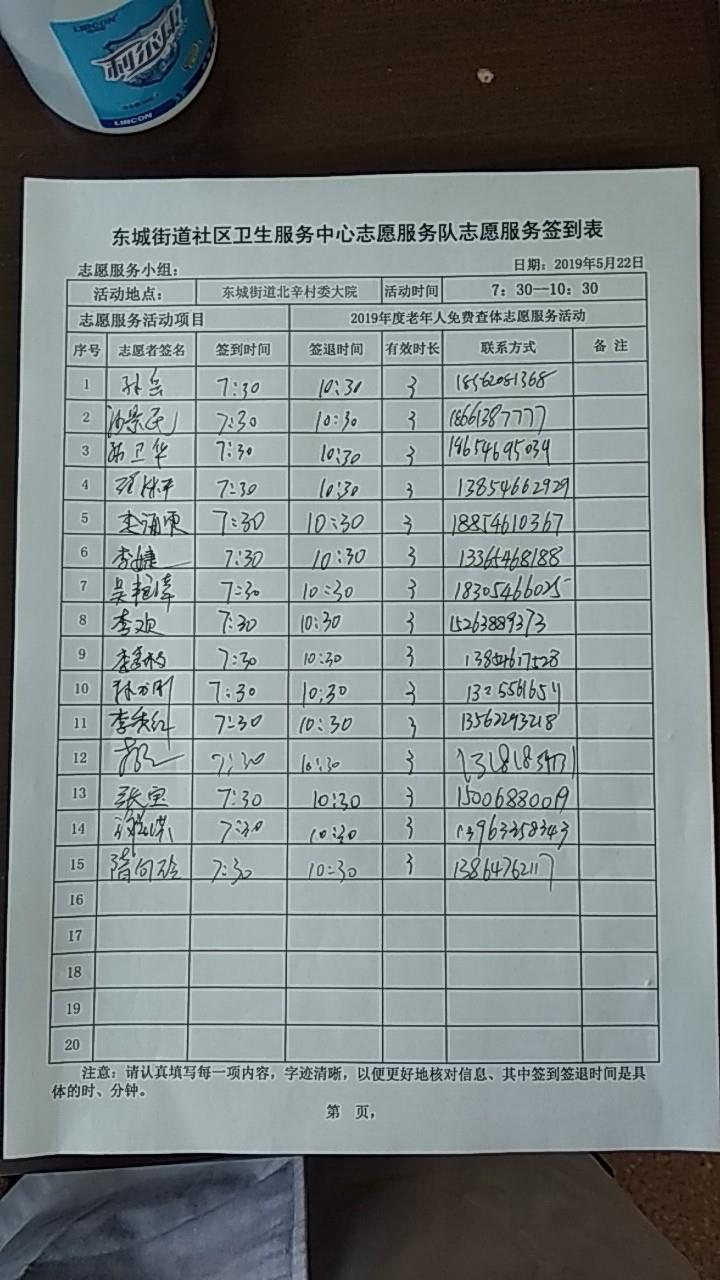 LIRCON
利尔康
LIRCON
东城街道社区卫生服务中心志愿服务队志愿服务签到表
志愿服务小组： 日期：2019年5月22日
活动地点： 东城街道北辛村委大院 活动时间 7：30—10：30
志愿服务活动项目 2019年度老年人免费查体志愿服务活动
序号 志愿者签名 签到时间 签退时间 有效时长 联系方式 备 注
1 7:30 10:30 3 18562081368
2 7:30 10:30 3 18661387777
3 卫华 7:30 10:30 3 18654695039
4 7:30 10:30 3 13854662929
5 7:30 10:30 3 18854610367
6 李婕 7:30 10:30 3 13365468188
7 吴艳 7:30 10:30 3 18305466025
8 李欢 7:30 10:30 3 15263889373
9 李 7:30 10:30 3
10 7:30 10:30 3
11 李秀红 7:30 10:30 3 13562293218
12 7:30 10:30 3
13 张宝 7:30 10:30 3 15006880019
14 7:30 10:30 3 13963358343
15 隋向玲 7:30 10:30 3 13864762117
16
17
18
19
20
注意：请认真填写每一项内容，字迹清晰，以便更好地核对信息、其中签到签退时间是具
体的时、分钟。
第 页，